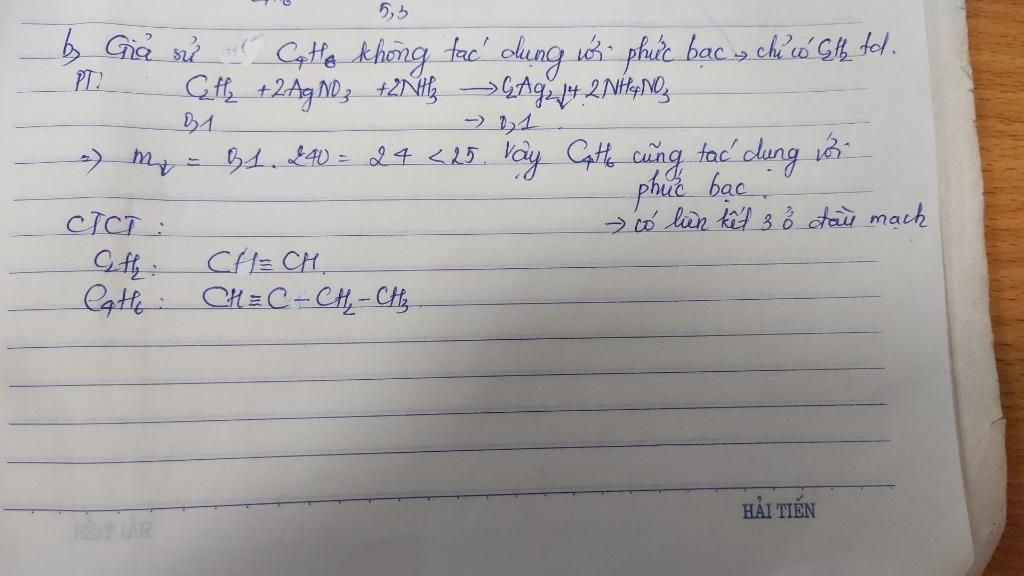 5,3
b, Giả sử C4H6 không tác dụng với phức bạc → chỉ có C2H2 td.
PT: C2H2 + 2AgNO3 + 2NH3 → C2Ag2↓ + 2NH4NO3
0,1 → 0,1
=> m↓ = 0,1 . 240 = 24 < 25. Vậy C4H6 cũng tác dụng với
phức bạc.
CTCT : → có liên kết 3 ở đầu mạch
C2H2: CH≡CH.
C4H6: CH≡C-CH2-CH3.
HẢI TIẾN